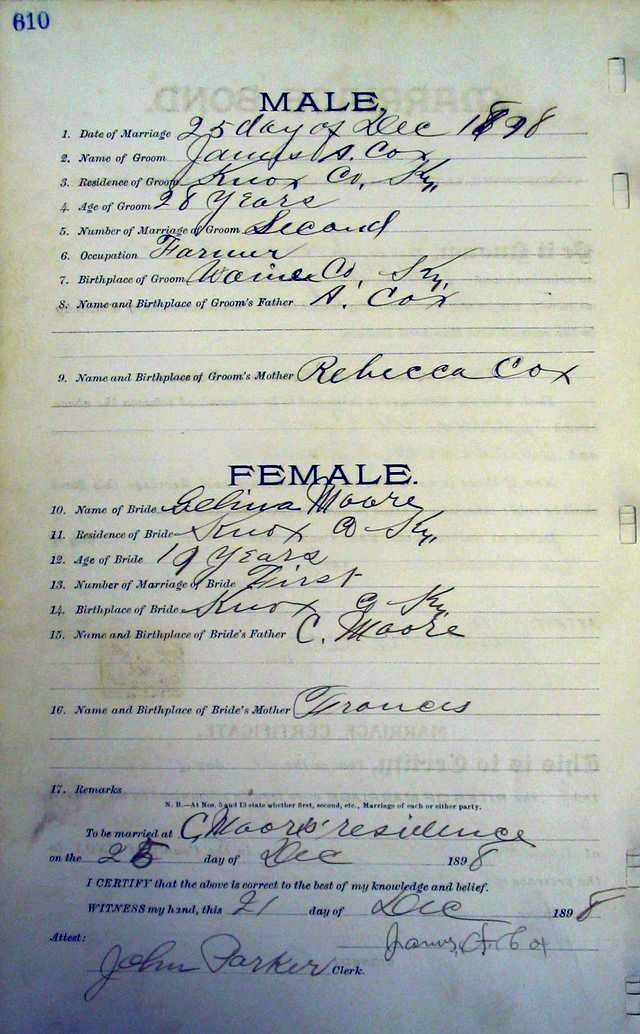 610
MALE.
1. Date of Marriage 25 day of Dec 1898
2. Name of Groom James A. Cox
3. Residence of Groom Knox Co, Ky,
4. Age of Groom 28 Years
5. Number of Marriage of Groom Second
6. Occupation Farmer
7. Birthplace of Groom Co, Ky,
8. Name and Birthplace of Groom's Father A. Cox
9. Name and Birthplace of Groom's Mother Rebecca Cox
FEMALE.
10. Name of Bride Moore
11. Residence of Bride Knox Co Ky,
12. Age of Bride 19 Years
13. Number of Marriage of Bride First
14. Birthplace of Bride Knox Co Ky
15. Name and Birthplace of Bride's Father C. Moore
16. Name and Birthplace of Bride's Mother Francis
17. Remarks
N. B.—At Nos. 5 and 13 state whether first, second, etc., Marriage of each or either party.
To be married at C, Moors residence
on the 25 day of Dec 1898
I CERTIFY that the above is correct to the best of my knowledge and belief.
WITNESS my hand, this 21 day of Dec 1898
Attest: James A. Cox
John Parker Clerk.